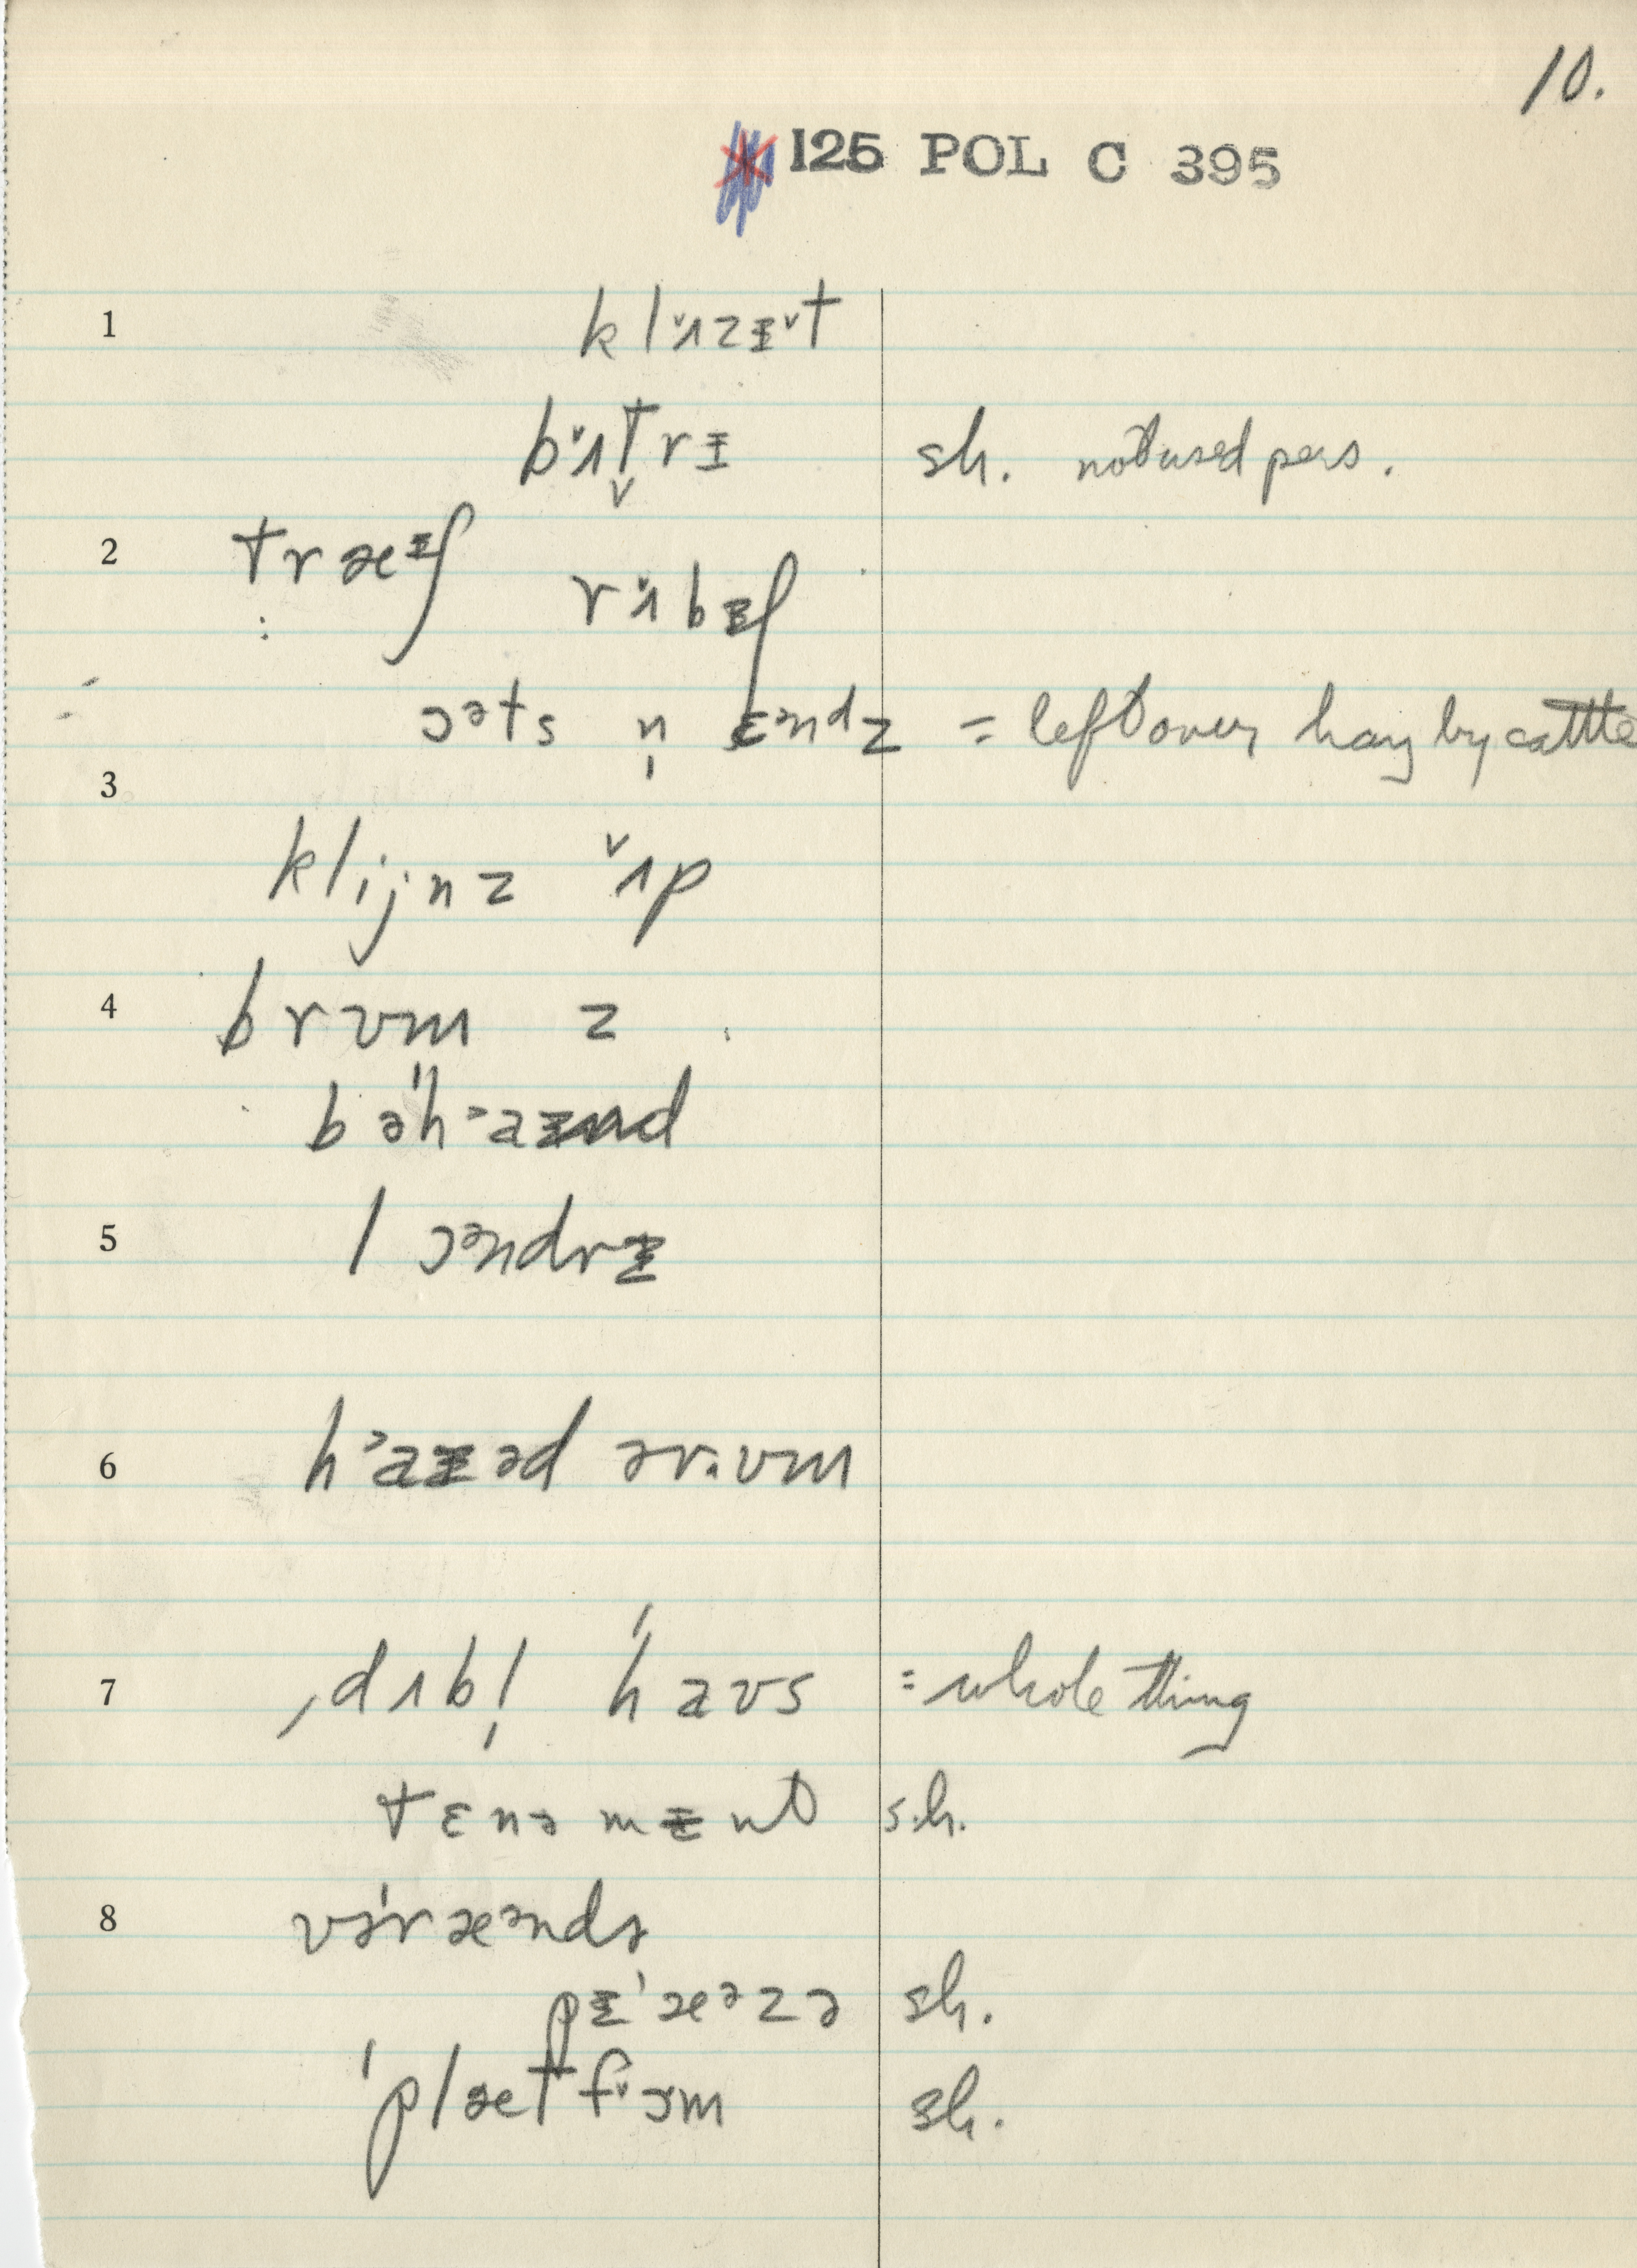 10.
125 POL C 395
1 klˇʌzᵻˇt
bˇʌt̬rᵻ sh. not used pers.
2 træᵻʃ
rˇʌbᵻʃ
ɔᵊts n̩ ɛᵊndz = left over hay by cattle
3
klijnz ˇʌp
4 brʊm z
bəˈhᵊaɪnd
5 lɔᵊndrᵻ
6 hᵊaᵻəd ər·ʊm
7 ˌdʌbl̩ ˈhaʊs = whole thing
tɛnəmᵻnt s.h.
8 vəˈræᵊndə
pᵻˈæᵊzə sh.
ˈplætfˇɔm sh.